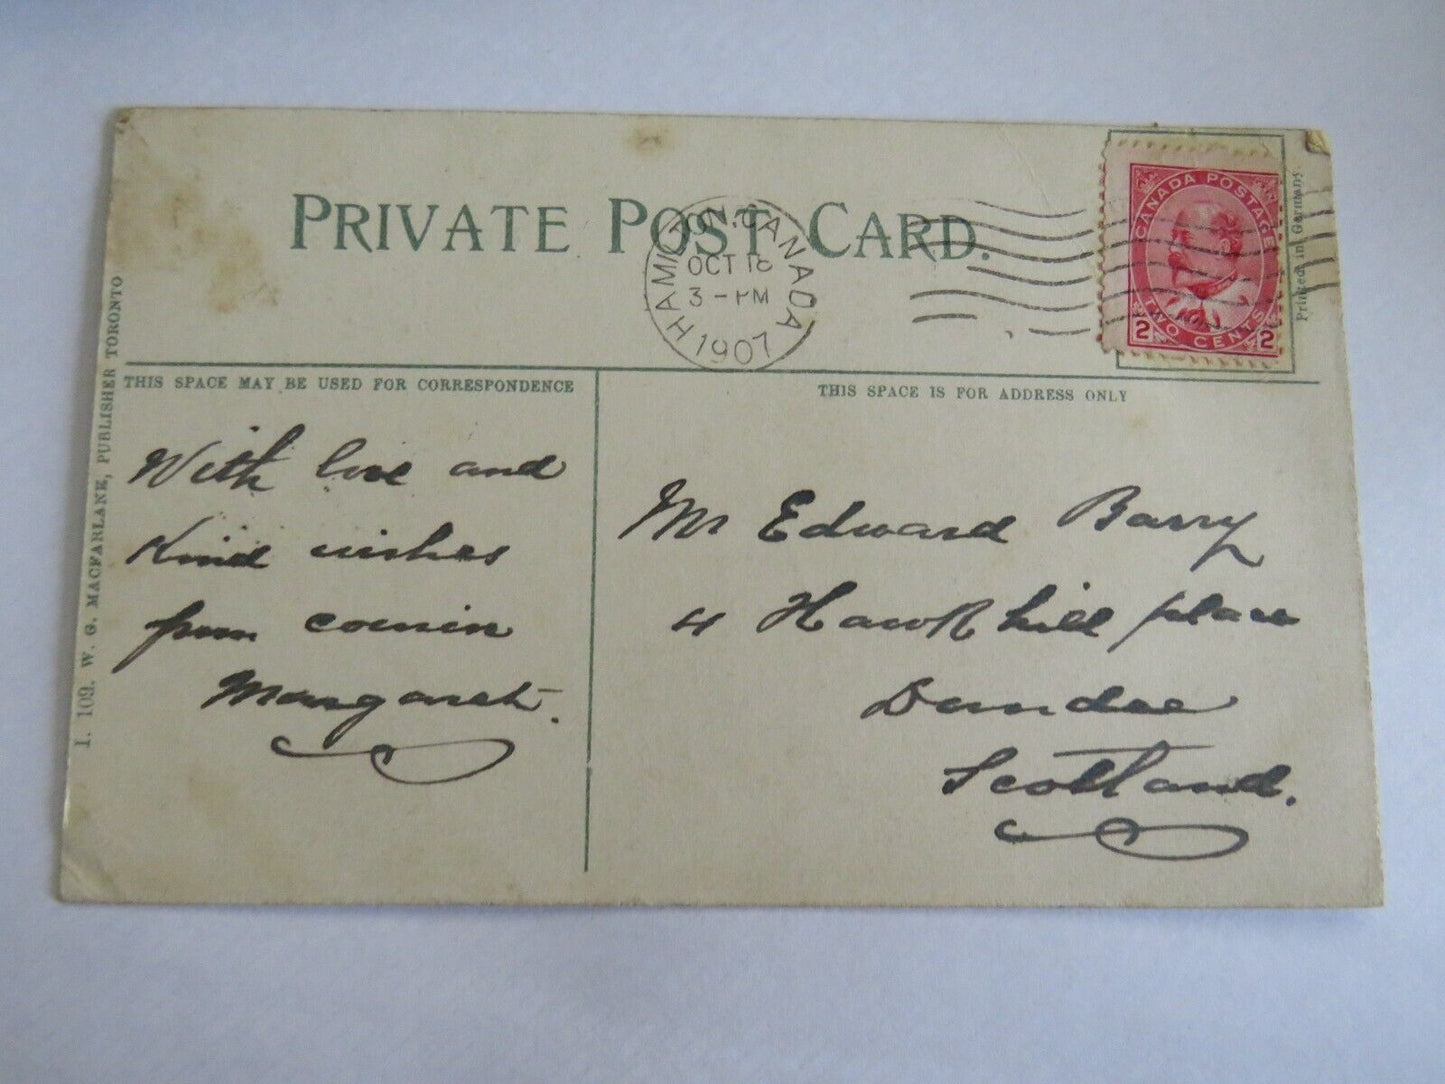 PRIVATE POST CARD.
HAMILTON, CANADA
OCT 18
3 - PM
1907
CANADA POSTAGE
2 TWO CENTS 2
Printed in Germany
I. 109. W. G. MACFARLANE, PUBLISHER TORONTO
THIS SPACE MAY BE USED FOR CORRESPONDENCE
With love and
Kind wishes
from cousin
Margaret.
THIS SPACE IS FOR ADDRESS ONLY
Mr Edward Barry
4 Hawkhill place
Dundee
Scotland.